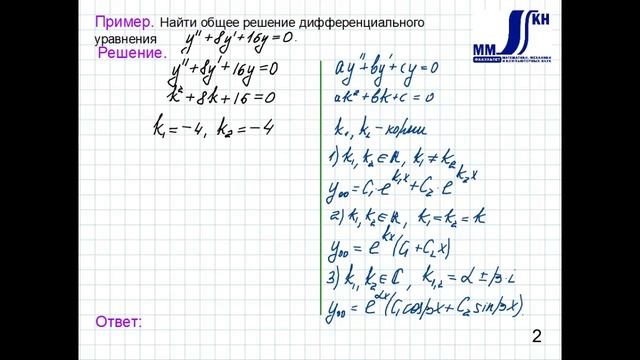 Пример. Найти общее решение дифференциального
уравнения y'' + 8y' + 16y = 0.
Решение.
y'' + 8y' + 16y = 0
k² + 8k + 16 = 0
k₁ = -4, k₂ = -4
ay'' + by' + cy = 0
ak² + bk + c = 0
k₁, k₂ - корни
1) k₁, k₂ ∈ ℝ, k₁ ≠ k₂
y₀₀ = C₁·e^(k₁x) + C₂·e^(k₂x)
2) k₁, k₂ ∈ ℝ, k₁ = k₂ = k
y₀₀ = e^(kx)(C₁ + C₂x)
3) k₁, k₂ ∈ ℂ, k₁,₂ = α ± β·i
y₀₀ = e^(αx)(C₁cosβx + C₂sinβx)
Ответ:
ММ КН
ФАКУЛЬТЕТ МАТЕМАТИКИ, МЕХАНИКИ
И КОМПЬЮТЕРНЫХ НАУК
2